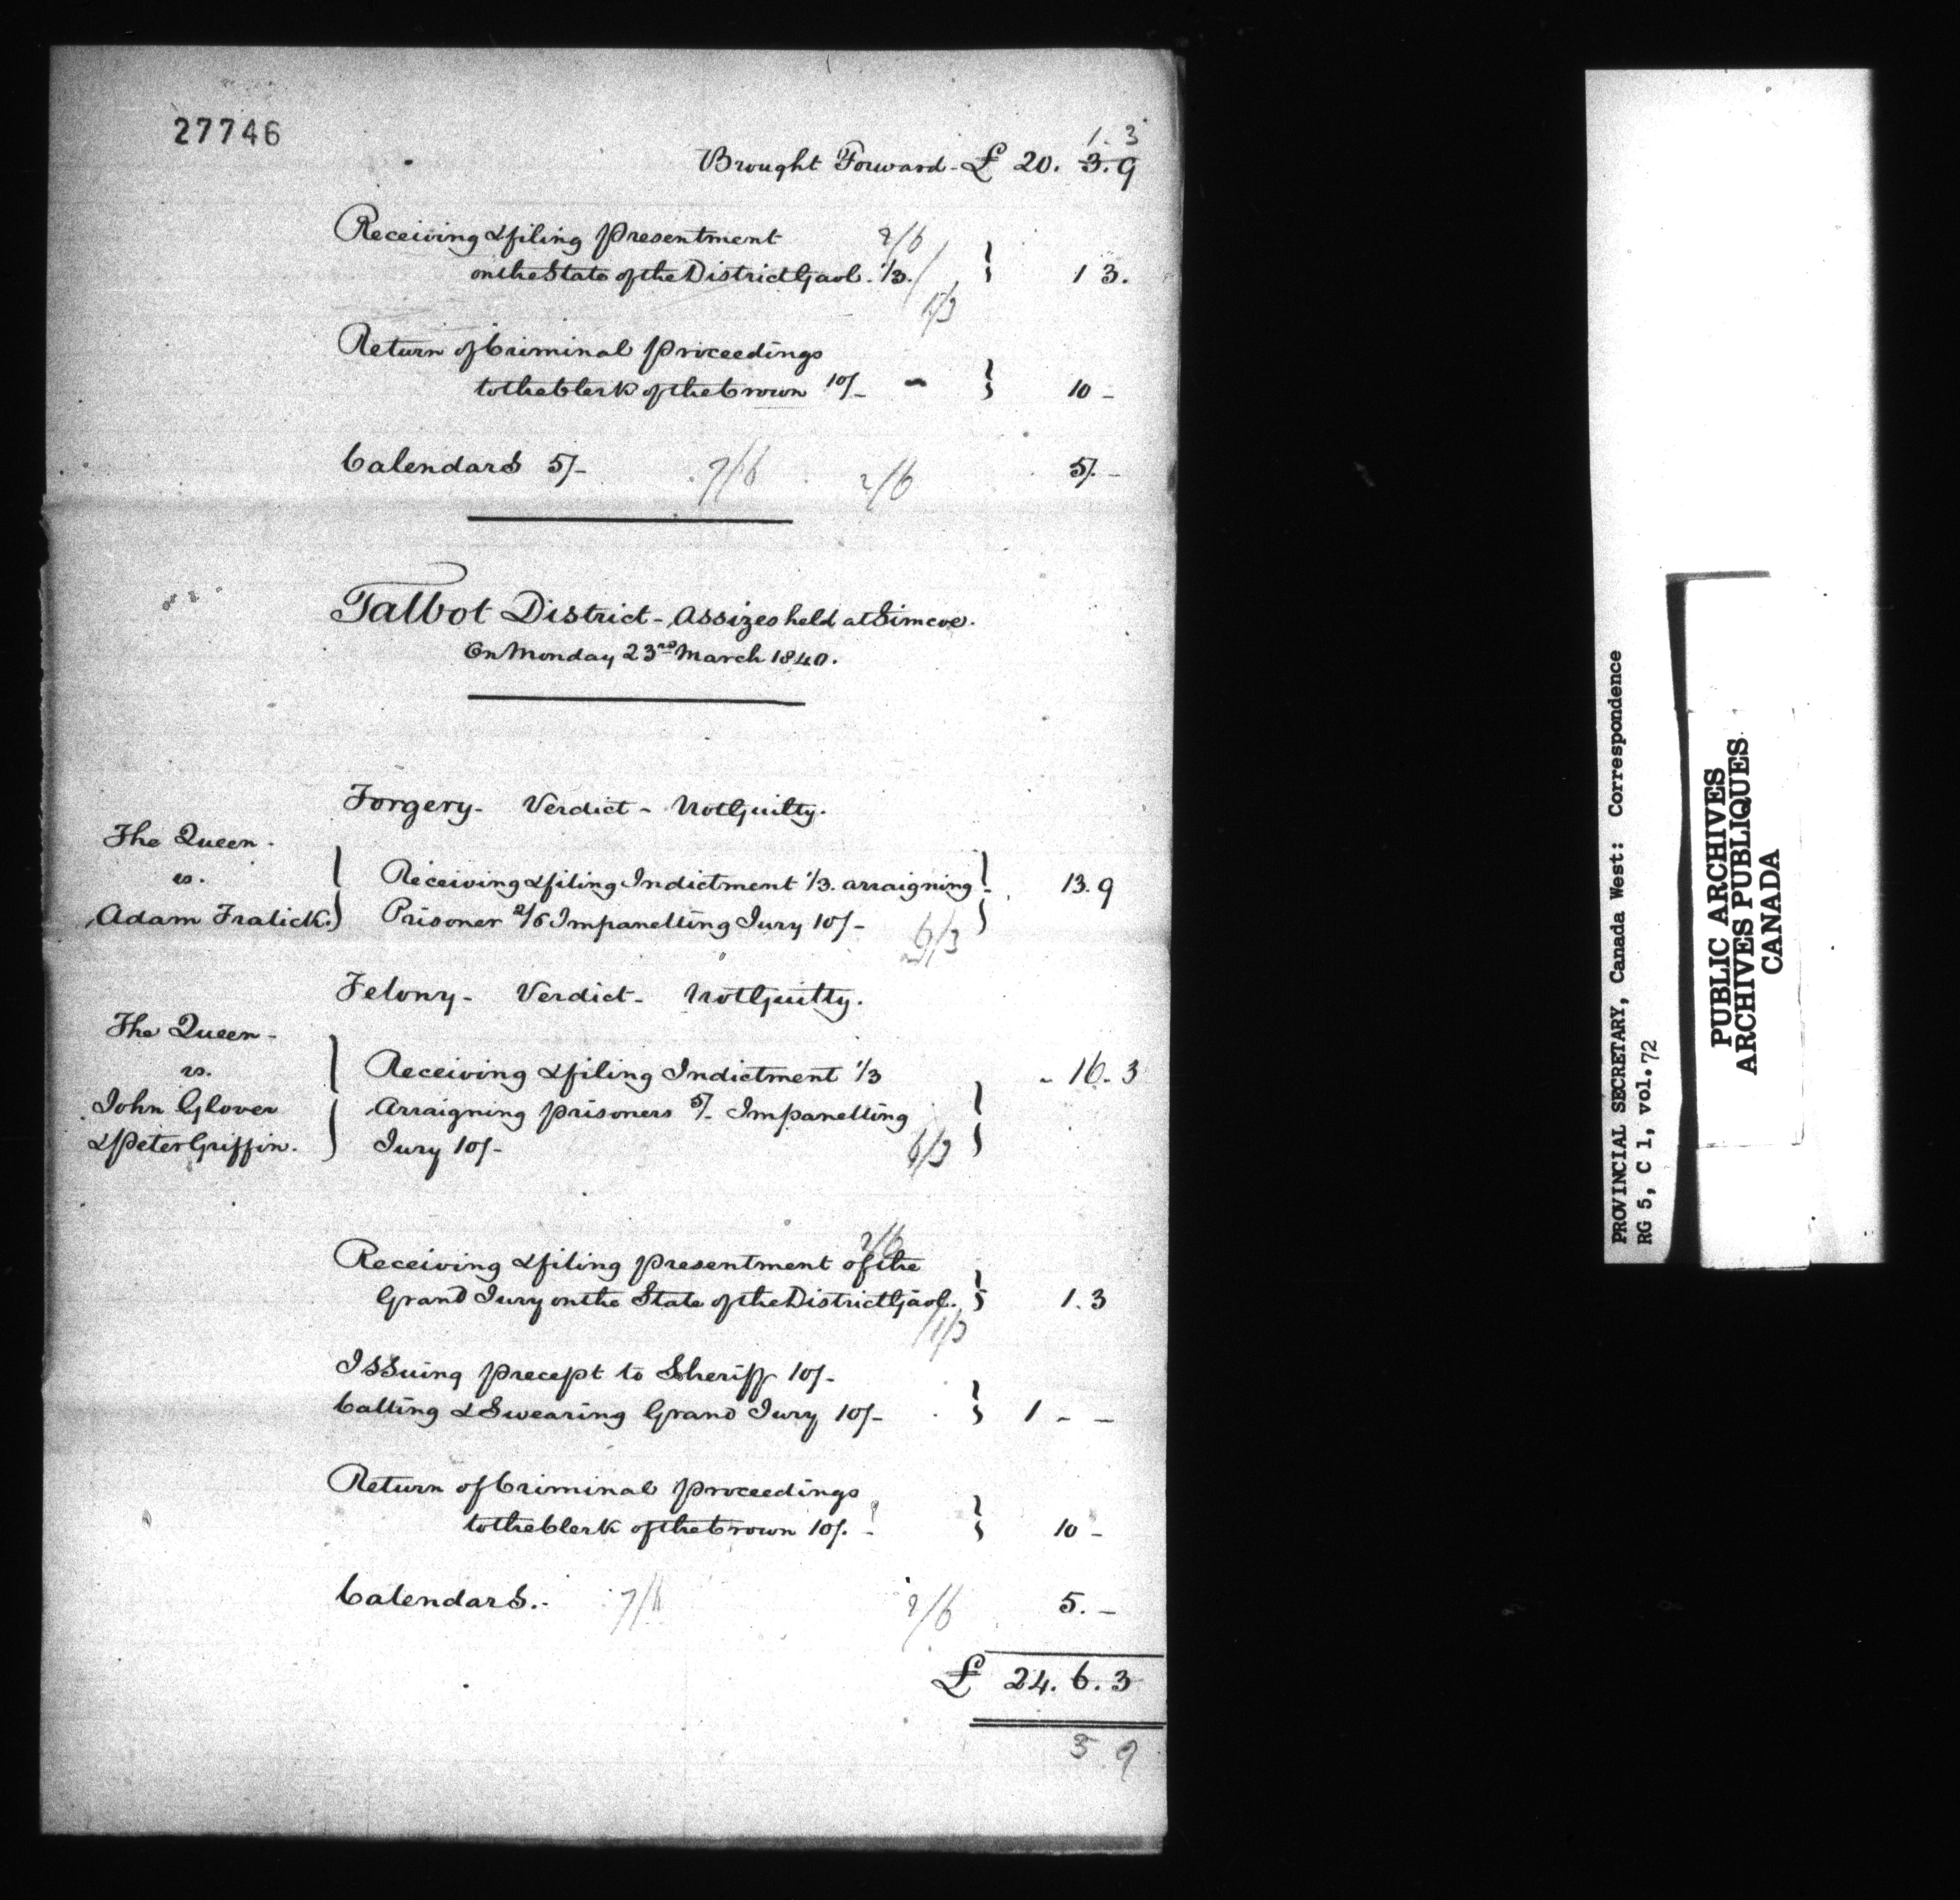 27746
1. 3
Brought Forward - £ 20. 3. 9
Receiving & filing Presentment 2/6
on the State of the District Gaol. 1/3. } 1 3.
1/3
Return of Criminal Proceedings
to the Clerk of the Crown 10/- - } 10 -
Calendars 5/- 7/6 2/6 5/. -
Talbot District - Assizes held at Simcoe.
On Monday 23rd March 1840.
Forgery - Verdict - Not Guilty.
The Queen -
vs. } Receiving & filing Indictment 1/3. arraigning } 13. 9
Adam Fralick. Prisoner 2/6 Impanelling Jury 10/-
6/3
Felony - Verdict - Not Guilty.
The Queen -
vs. } Receiving & filing Indictment 1/3 - 16. 3
John Glover Arraigning prisoners 5/- Impanelling }
& Peter Griffin. Jury 10/- 6/3
2/6
Receiving & filing presentment of the
Grand Jury on the State of the District Gaol. } 1. 3
1/3
Issuing precept to Sheriff 10/-
Calling & Swearing Grand Jury 10/- } 1 - -
Return of Criminal Proceedings
to the Clerk of the Crown 10/. - } 10 -
Calendars. - 7/6 2/6 5. -
£ 24. 6. 3
3 9
PROVINCIAL SECRETARY, Canada West: Correspondence
RG 5, C 1, vol. 72
PUBLIC ARCHIVES
ARCHIVES PUBLIQUES
CANADA